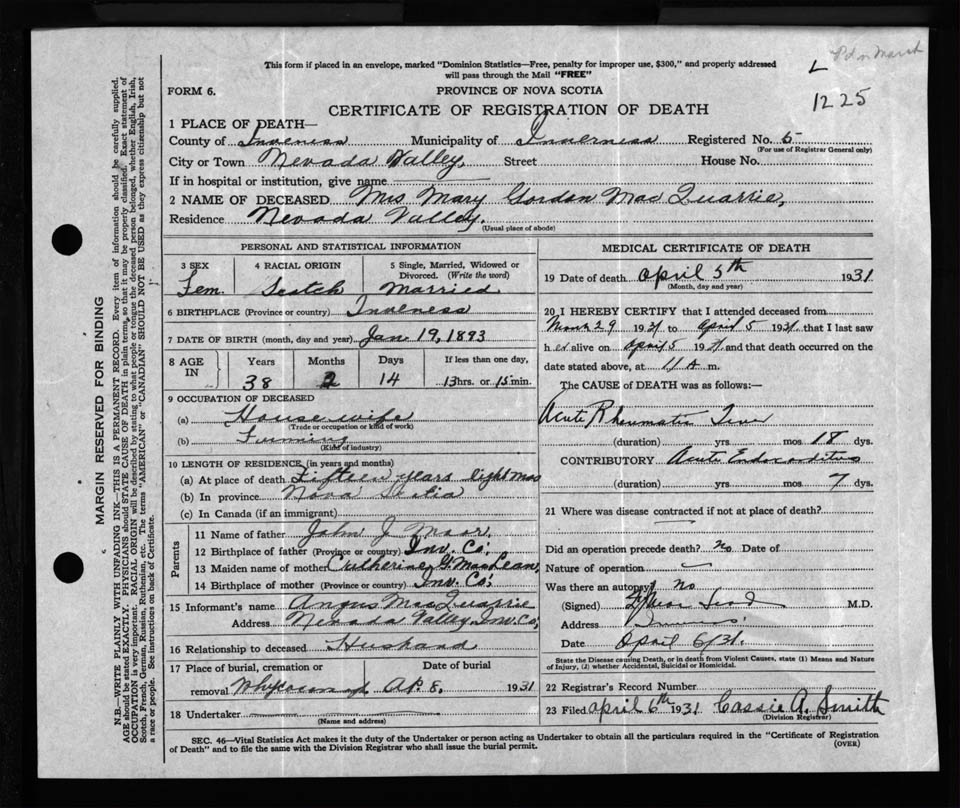 This form if placed in an envelope, marked "Dominion Statistics—Free, penalty for improper use, $300," and properly addressed
will pass through the Mail "FREE"
L
1225
FORM 6.
PROVINCE OF NOVA SCOTIA
CERTIFICATE OF REGISTRATION OF DEATH
1 PLACE OF DEATH—
County of Inverness Municipality of Inverness Registered No. 5
(For use of Registrar General only)
City or Town Nevada Valley, Street House No.
If in hospital or institution, give name
2 NAME OF DECEASED Mrs Mary Gordon MacQuarrie,
Residence Nevada Valley.
(Usual place of abode)
PERSONAL AND STATISTICAL INFORMATION
3 SEX 4 RACIAL ORIGIN 5 Single, Married, Widowed or Divorced. (Write the word)
Fem. Scotch Married
6 BIRTHPLACE (Province or country) Inverness
7 DATE OF BIRTH (month, day and year) Jan 19, 1893
8 AGE IN Years Months Days If less than one day,
38 2 14 13 hrs. or 15 min.
9 OCCUPATION OF DECEASED
(a) House wife
(Trade or occupation or kind of work)
(b) Farming
(Kind of industry)
10 LENGTH OF RESIDENCE (in years and months)
(a) At place of death Fifteen years eight mos
(b) In province Nova Scotia
(c) In Canada (if an immigrant)
Parents
11 Name of father John J
12 Birthplace of father (Province or country) Inv. Co.
13 Maiden name of mother Catherine G. MacLean,
14 Birthplace of mother (Province or country) Inv. Co.
15 Informant's name Angus MacQuarrie
Address Nevada Valley, Inv. Co,
16 Relationship to deceased Husband
17 Place of burial, cremation or removal Date of burial
Ap. 8, 1931
18 Undertaker
(Name and address)
MEDICAL CERTIFICATE OF DEATH
19 Date of death April 5th 1931
(Month, day and year)
20 I HEREBY CERTIFY that I attended deceased from
March 29 1931 to April 5 1931 that I last saw
her alive on April 5 1931 and that death occurred on
date stated above, at 11 A m.
The CAUSE OF DEATH was as follows:—
Acute Rheumatic Fever
(duration) yrs mos 18 dys.
CONTRIBUTORY Acute Endocarditis
(duration) yrs mos 7 dys.
21 Where was disease contracted if not at place of death?
Did an operation precede death? no Date of
Nature of operation
Was there an autopsy? no
(Signed) M.D.
Address
Date April 6/31.
State the Disease causing Death, or in death from Violent Causes, state (1) Means and Nature of Injury, (2) whether Accidental, Suicidal or Homicidal.
22 Registrar's Record Number
23 Filed April 6th 1931 Cassie A. Smith
(Division Registrar)
SEC. 46—Vital Statistics Act makes it the duty of the Undertaker or person acting as Undertaker to obtain all the particulars required in the "Certificate of Registration
of Death" and to file the same with the Division Registrar who shall issue the burial permit.
(OVER)
MARGIN RESERVED FOR BINDING
N.B.—WRITE PLAINLY WITH UNFADING INK—THIS IS A PERMANENT RECORD. Every item of information should be carefully supplied.
AGE should be stated EXACTLY. PHYSICIANS should STATE CAUSE OF DEATH in plain terms, so that it may be properly classified. Exact statement of
OCCUPATION is very important. RACIAL ORIGIN will be described by stating to what people or tongue the deceased person belonged, whether English, Irish,
Scotch, French, German, Russian, Ruthenian, etc. The terms "AMERICAN" or "CANADIAN" SHOULD NOT BE USED as they express citizenship but not
a race or people. See instructions on back of Certificate.